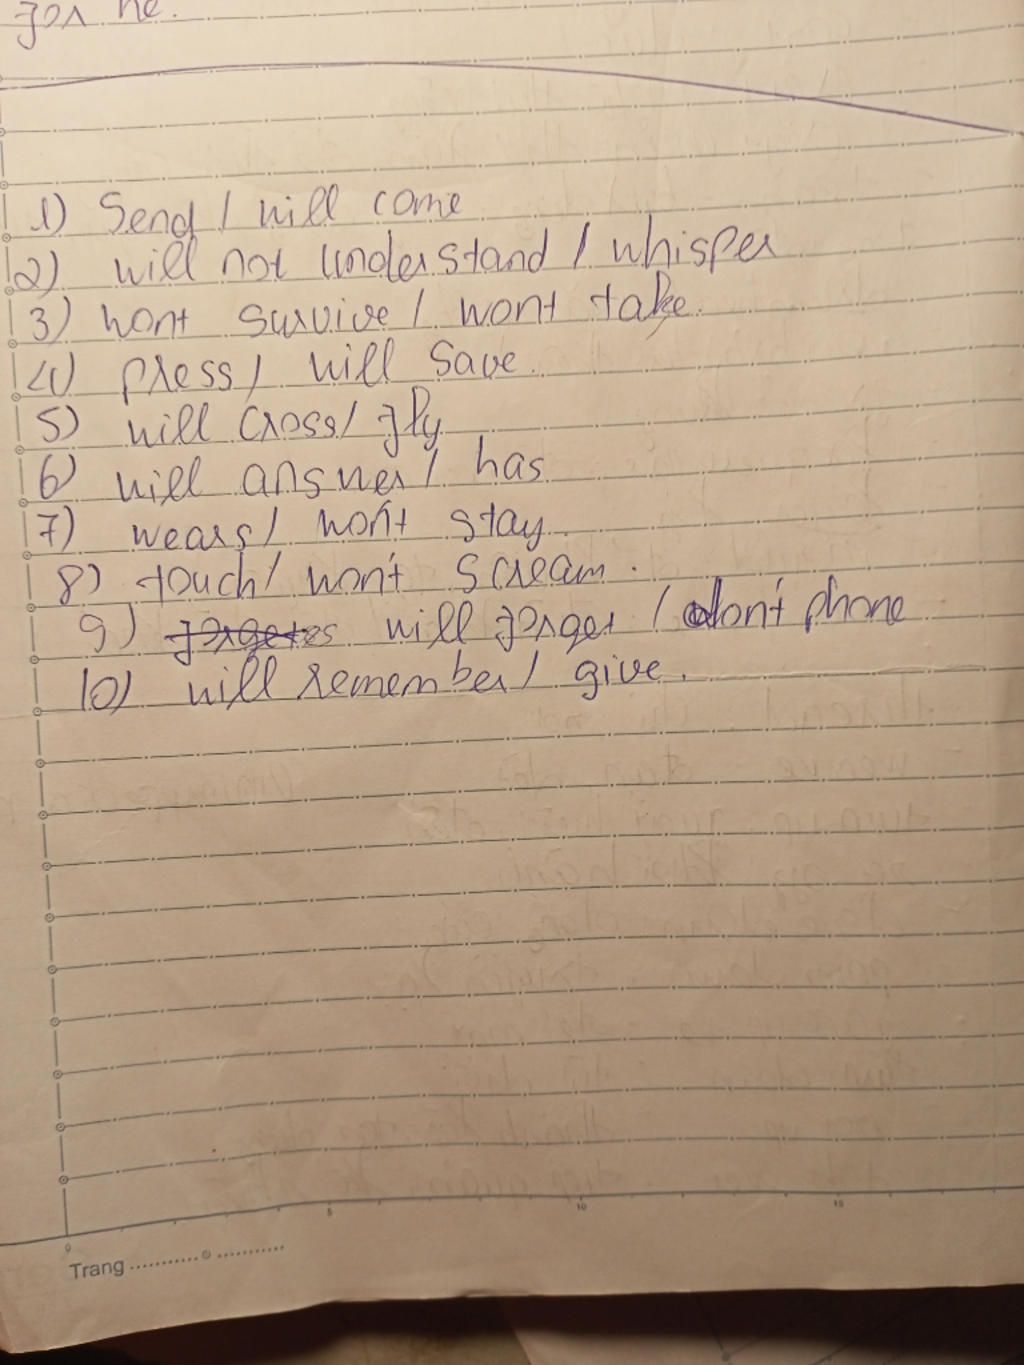 for he.
1) Send / will come
2) will not understand / whisper
3) wont survive / wont take.
4) press / will save.
5) will cross / fly
6) will answer / has
7) wears / won't stay.
8) touch / won't scream.
9) forgetes will forget / don't phone
10) will remember / give.
0 5 10 15
Trang